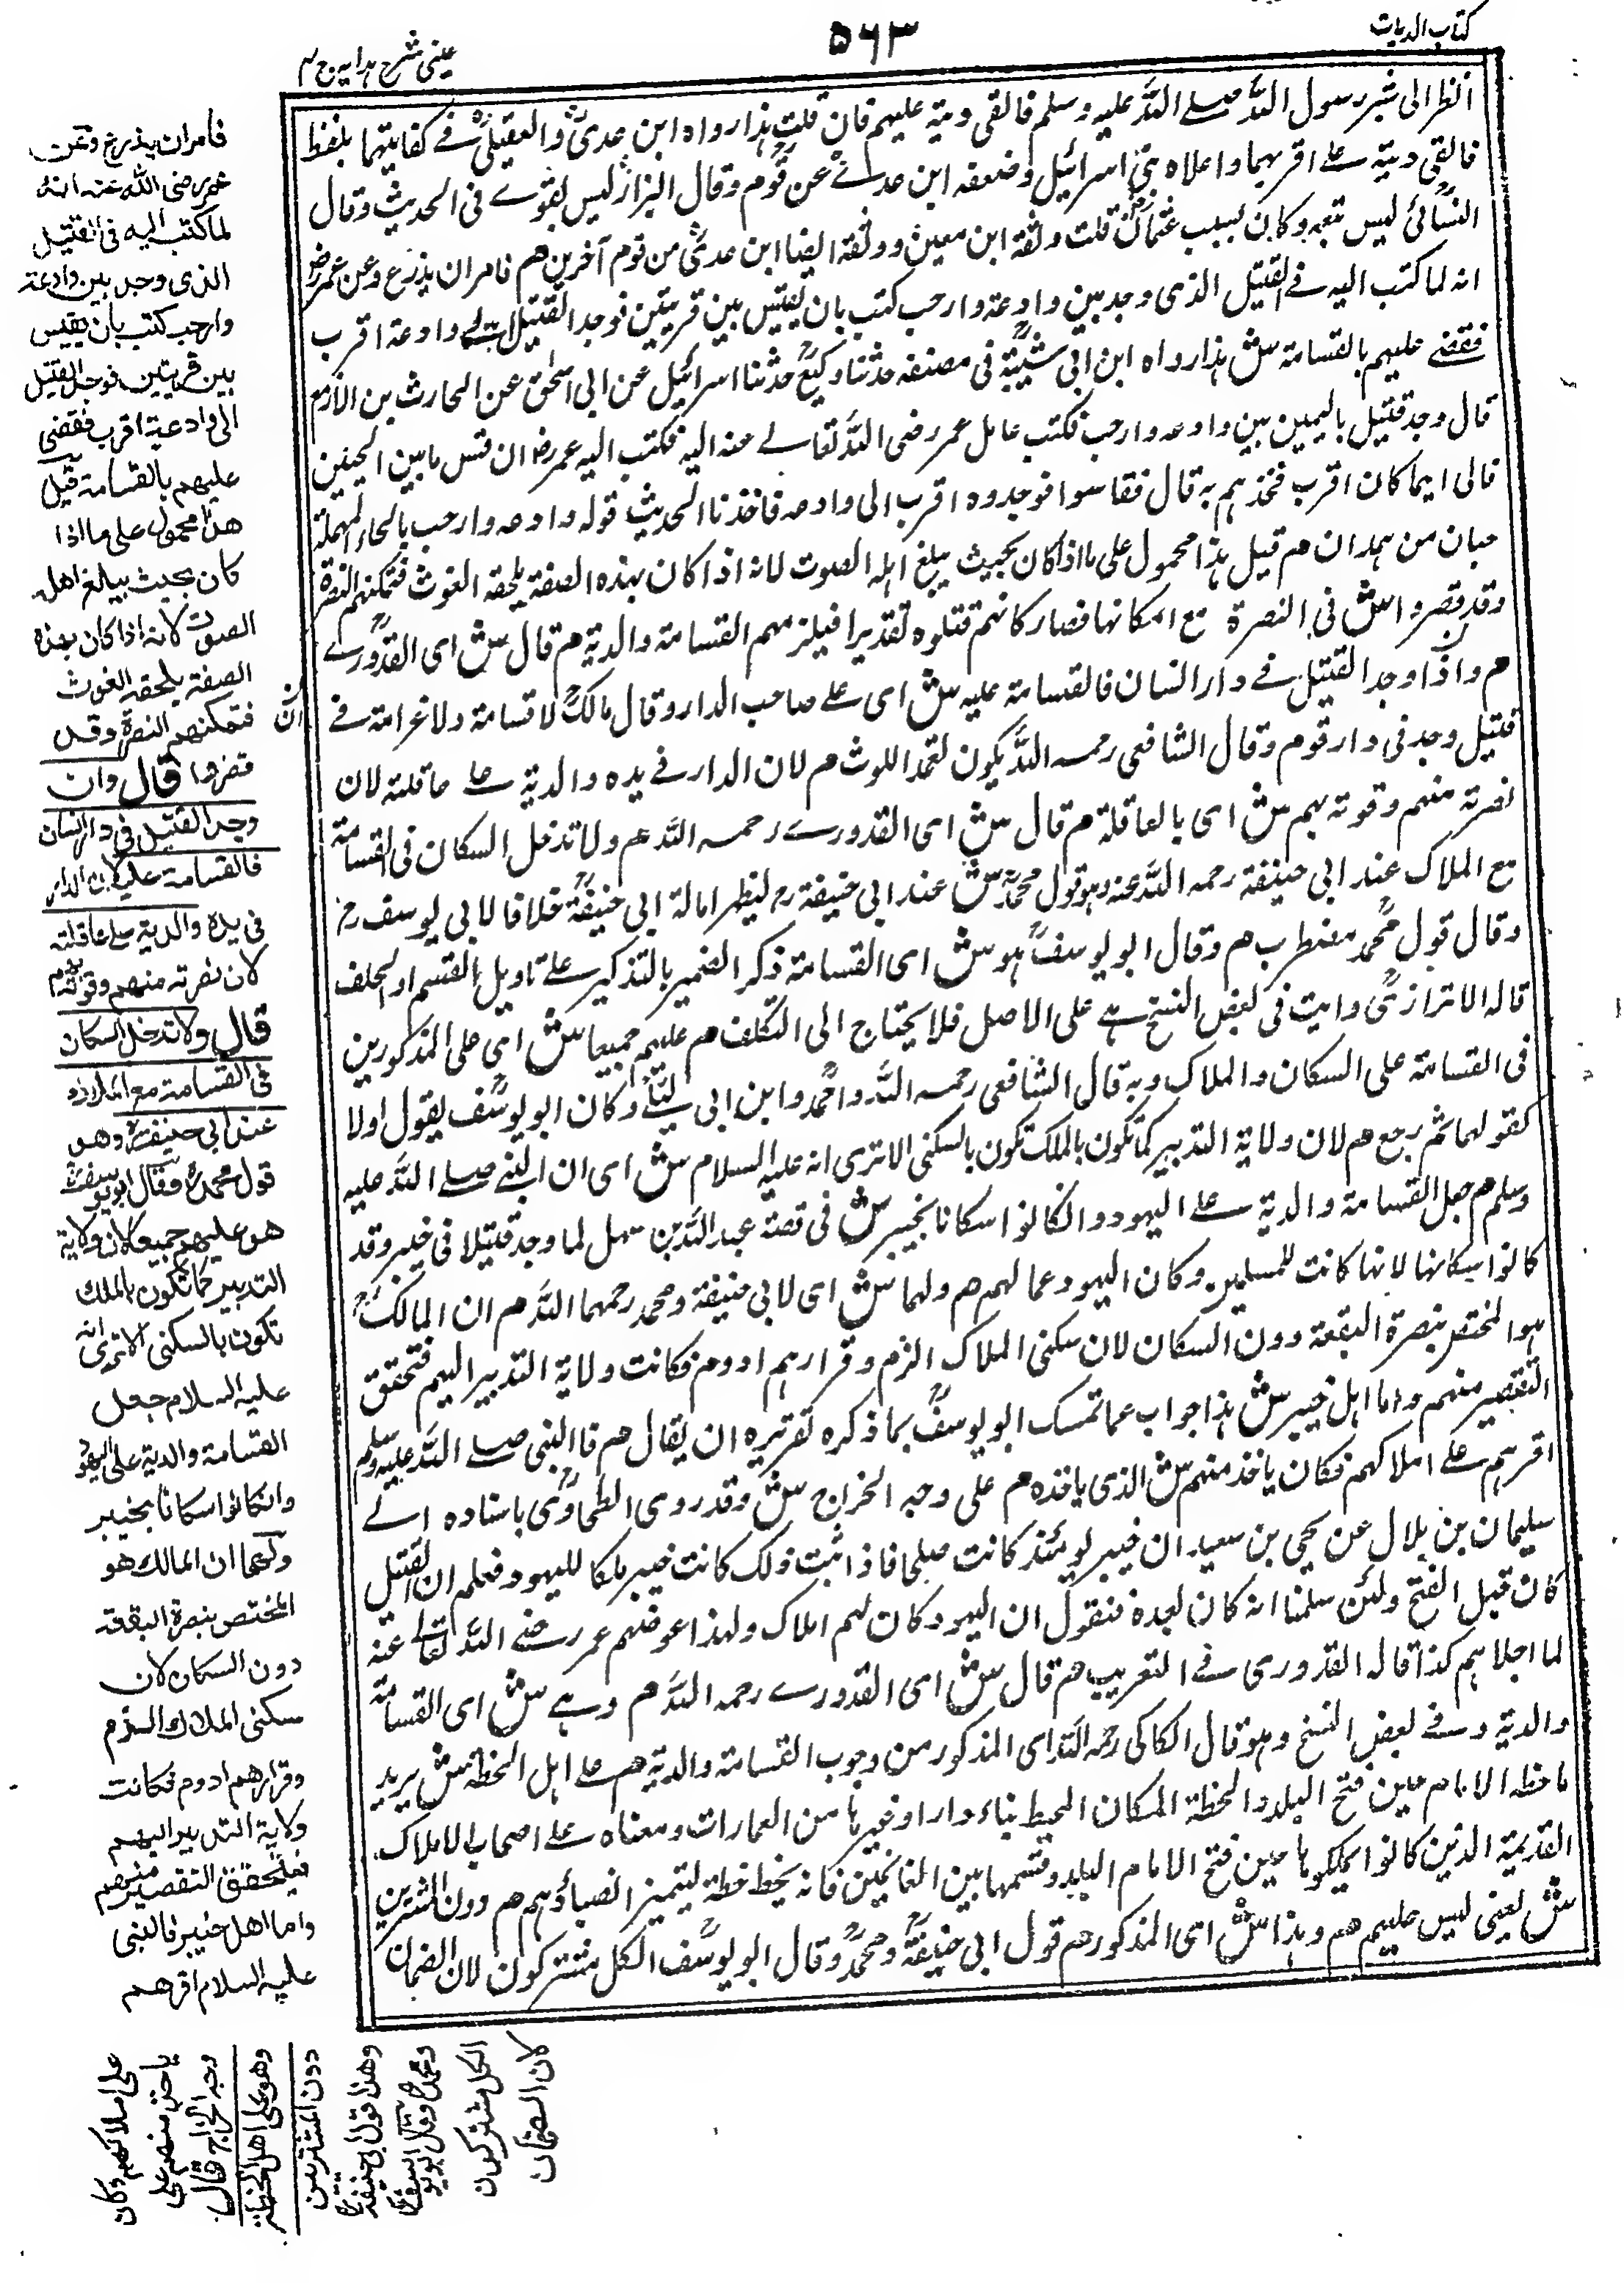 كتاب الديات
۵۶۳
عينى شرح هدايه ج ۴
انظر الى شبر رسول الله صلے الله عليه وسلم فالقى ديته عليهم فان قلت هذا رواه ابن عدىؒ والعقيلىؒ فے كتابيهما بلفظ
فالقى ديته علے اقربهما واعلاه بابى اسرائيل وضعفه ابن عدےؒ عن قوم وقال البزار ليس بقوے فى الحديث وقال
النسائى ليس بثقة وكان يسب عثمانؓ قلت وثقه ابن معينؒ ووثقه ايضا ابن عدىؒ من قوم آخرين هم فامر ان يذرع وعن عمر رض
انه لما كتب اليه فے القتيل الذى وجد بين وادعة وارحب كتب بان يقيس بين قريتين فوجد القتيل الے وادعة اقرب
فقضے عليهم بالقسامة ش هذا رواه ابن ابى شيبةؒ فى مصنفه حدثنا وكيعؒ حدثنا اسرائيل عن ابى اسحٰق عن الحارث بن الازمع
قال وجد قتيل باليمن بين وادعه وارحب فكتب عامل عمر رضى الله تعالے عنه اليه فكتب اليه عمر رض ان قس ما بين الحيين
فالى ايهما كان اقرب فخذهم به قال فقاسوا فوجدوه اقرب الى وادعه فاخذنا الحديث قوله وادعه وارحب بالحاء المهملة
حيان من همدان م قيل هذا محمول على ما اذا كان بحيث يبلغ اهله الصوت لانه اذا كان بهذه الصفة يلحقه الغوث فتمكنهم النصرة
وقد قصروا ش فى النصرة مع امكانها فصار كانهم قتلوه تقديرا فيلزمهم القسامة والدية م قال ش اى القدورےؒ
م واذا وجد القتيل فے دار انسان فالقسامة عليه ش اى علے صاحب الدار وقال مالكؒ لا قسامة ولا غرامة فے
قتيل وجد فى دار قوم وقال الشافعى رحمه الله يكون لقمه اللوث م لان الدار فے يده والدية علے عاقلته لان
نصرته منهم وقوته بهم ش اى بالعاقلة م قال ش اى القدورے رحمه الله م ولا تدخل السكان فى القسامة
مع الملاك عند ابى حنيفة رحمه الله عنه وهو قول محمدؒ ش عند ابى حنيفة رح لينظر امالة ابى حنيفةؒ خلافا لابى يوسف رح
وقال قول محمد مضطرب م وقال ابو يوسفؒ هو ش اى القسامة ذكر الضمير بالتذكير علے تاويل القسم او الحلف
قاله الاترازىؒ وايت فى بعض النسخ هے على الاصل فلا يحتاج الى التكلف م عليهم جميعا ش اى على المذكورين
فى القسامة على السكان والملاك وبه قال الشافعى رحمه الله واحمدؒ وابن ابى ليلےؒ وكان ابو يوسفؒ يقول اولا
كقولهما ثم رجع م لان ولاية التدبير كما تكون بالملك تكون بالسكنى الا ترى انه عليه السلام ش اى ان النبے صلے الله عليه
وسلم م جعل القسامة والدية علے اليهود وانكانوا سكانا بخيبر ش فى قصة عبد الله بن سهل لما وجد قتيلا فى خيبر وقد
كانوا سكانها لانها كانت للمسلمين وكان اليهود عما لهم م ولهما ش اى لابى حنيفة ومحمد رحمهما الله م ان المالك
هو المختص بنصرة البقعة دون السكان لان سكنى الملاك الزم وقرارهم ادوم فكانت ولاية التدبير اليهم فتحقق
التقصير منهم واما اهل خيبر ش هذا جواب عما تمسك ابو يوسفؒ بما ذكره تقريره ان يقال م فالنبى صلے الله عليه وسلم
اقرهم علے املاكهم فكان ياخذ منهم ش الذى ياخذه م على وجه الخراج ش وقد روى الطحاوىؒ باسناده الے
سليمان بن بلال عن يحيى بن سعيد ان خيبر يومئذ كانت صلحا فاذا ثبت ذلك كانت خيبر ملكا لليهود فعلم ان القتيل
كان قبل الفتح ولئن سلمنا انه كان بعده فنقول ان اليهود كان لهم املاك ولهذا عوضهم عمر رضے الله تعالے عنه
لما اجلاهم كذا قاله القدورى فے التقريب م قال ش اى القدورے رحمه الله م وهے ش اى القسامة
والدية وفے بعض النسخ وهو قال الكاكى رحمه الله اى المذكور من وجوب القسامة والدية م علے اهل الخطة ش يريد
ما خطه الامام حين فتح البلد والخطة المكان المحيط بناء دار او غيرها من العمارات ومعناه علے اصحاب الاملاك
القديمة الذين كانوا يملكونها حين فتح الامام البلد وقسمها بين الغانمين فانه يخط خطة لتتميز انصباؤهم م دون المشترين
ش يعنى ليس عليهم م وهذا ش اى المذكور م قول ابى حنيفةؒ ومحمدؒ وقال ابو يوسفؒ الكل مشتركون لان الضمان
فامر ان يذرع وعن
عمر رضى الله عنه انه
لما كتب اليه فى القتيل
الذى وجد بين وادعة
وارحب كتب بان يقيس
بين قريتين فوجد القتيل
الى وادعة اقرب فقضى
عليهم بالقسامة قيل
هذا محمول على ما اذا
كان بحيث يبلغ اهله
الصوت لانه اذا كان بهذه
الصفة يلحقه الغوث
فتمكنهم النصرة وقد
قصروا قال وان
وجد القتيل فى دار انسان
فالقسامة عليه لان الدار
فى يده والدية على عاقلته
لان نصرته منهم وقوته بهم
قال ولا تدخل السكان
فى القسامة مع الملاك
عند ابى حنيفةؒ وهو
قول محمدؒ وقال ابو يوسفؒ
هو عليهم جميعا لان ولاية
التدبير كما تكون بالملك
تكون بالسكنى الا ترى انه
عليه السلام جعل
القسامة والدية على اليهود
وانكانوا سكانا بخيبر
ولهما ان المالك هو
المختص بنصرة البقعة
دون السكان لان
سكنى الملاك الزم
وقرارهم ادوم فكانت
ولاية التدبير اليهم
فيتحقق التقصير منهم
واما اهل خيبر فالنبى
عليه السلام اقرهم
على املاكهم وكان
ياخذ منهم على
وجه الخراج قال
وهو على اهل الخطة
دون المشترين
وهذا قول ابى حنيفةؒ
ومحمدؒ وقال ابو يوسفؒ
الكل مشتركون
لان الضمان